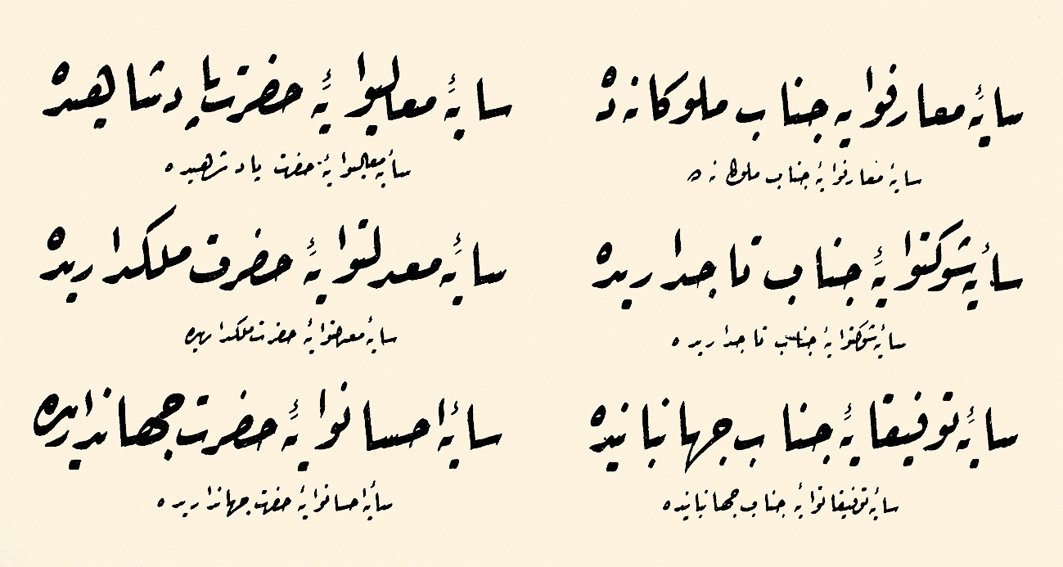 سایۀ معارفوایۀ جناب ملوكانه ده
سایۀ معارفوایۀ جناب ملوكانه ده
سایۀ شوكتوایۀ جناب تاجداریده
سایۀ شوكتوایۀ جناب تاجداریده
سایۀ توفیقایۀ جناب جهانبانیده
سایۀ توفیقاتوایۀ جناب جهانبانیده
سایۀ معالیوایۀ حضرت پادشاهیده
سایۀ معالیوایۀ حضرت پادشاهیده
سایۀ معدلتوایۀ حضرت ملكداریده
سایۀ معدلتوایۀ حضرت ملكداریده
سایۀ احسانوایۀ حضرت جهانداریده
سایۀ احسانوایۀ حضرت جهانداریده